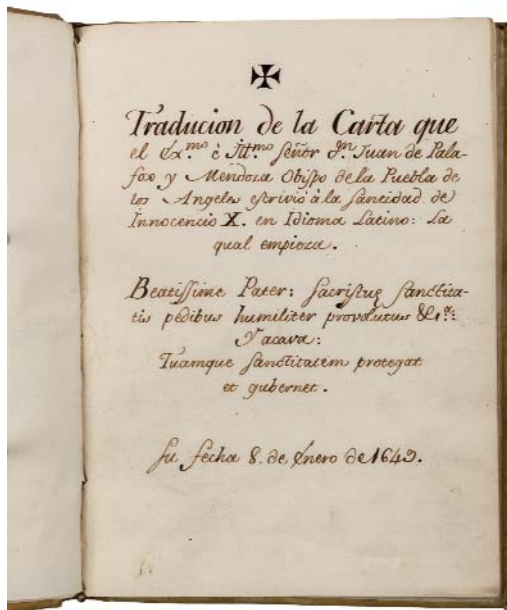 ✠
Traducion de la Carta que
el Ex.mo è Ill.mo Señor D.n Juan de Pala-
fox y Mendoza Obispo de la Puebla de
los Angeles escrivió à la Santidad de
Innocencio X. en Idioma Latino: La
qual empieza.
Beatissime Pater: Sacristuę Sanctita-
tis pedibus humiliter provolutus &c.ª:
Y acava:
Tuamque Sanctitatem protegat
et gubernet.
Su fecha 8. de Enero de 1649.